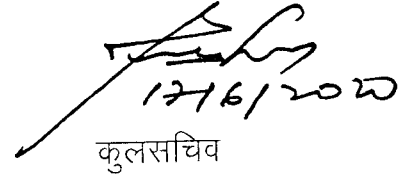 17/6/2020
कुलसचिव